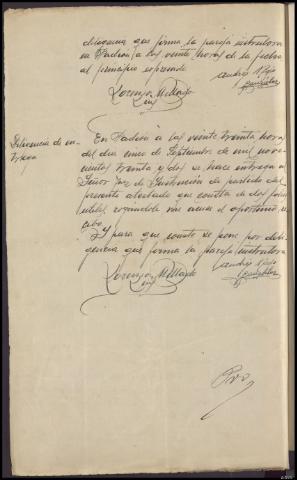 diligencia que firma la pareja instructora
en Padrón a las veinte horas de la fecha
al principio expresada
Lorenzo
Diligencia de en-
trega
En Padrón a las veinte treinta horas
del dia once de Septiembre de mil nove-
cientos treinta y dos se hace entrega al
Señor Juez de Instrucción de partido del
presente atestado que consta de dos folios
utiles rogandole nos acuse el oportuno re-
cibo.
Y para que conste se pone por dili-
gencia que firma la pareja instructora
Lorenzo